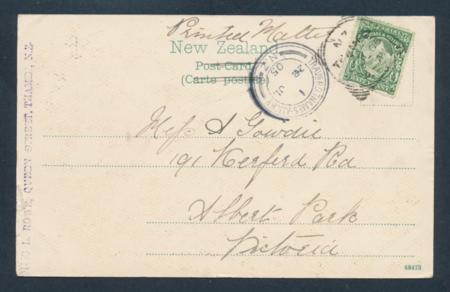 Printed Matter
New Zealand
Post-Card
(Carte postale)
A Gowdie
191 Kerferd Rd
Albert Park
Victoria
QUEEN STREET, THAMES, N.Z.